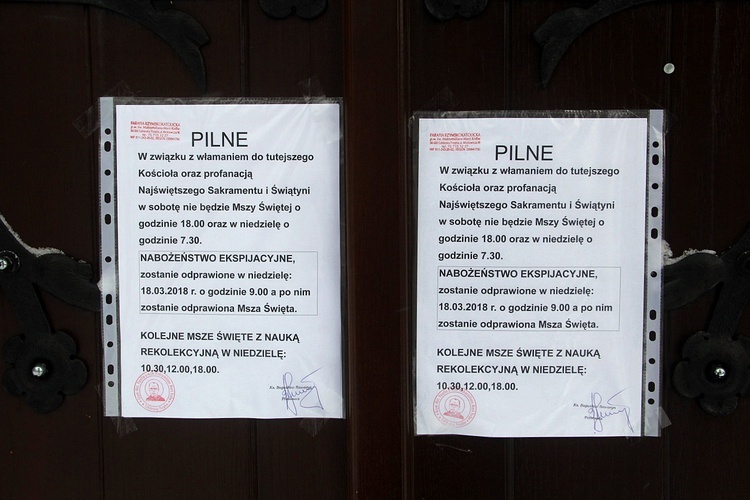 PARAFIA RZYMSKOKATOLICKA
PILNE
W związku z włamaniem do tutejszego
Kościoła oraz profanacją
Najświętszego Sakramentu i Świątyni
w sobotę nie będzie Mszy Świętej o
godzinie 18.00 oraz w niedzielę o
godzinie 7.30.
NABOŻEŃSTWO EKSPIJACYJNE,
zostanie odprawione w niedzielę:
18.03.2018 r. o godzinie 9.00 a po nim
zostanie odprawiona Msza Święta.
KOLEJNE MSZE ŚWIĘTE Z NAUKĄ
REKOLEKCYJNĄ W NIEDZIELĘ:
10.30,12.00,18.00.
PARAFIA RZYMSKOKATOLICKA
PILNE
W związku z włamaniem do tutejszego
Kościoła oraz profanacją
Najświętszego Sakramentu i Świątyni
w sobotę nie będzie Mszy Świętej o
godzinie 18.00 oraz w niedzielę o
godzinie 7.30.
NABOŻEŃSTWO EKSPIJACYJNE,
zostanie odprawione w niedzielę:
18.03.2018 r. o godzinie 9.00 a po nim
zostanie odprawiona Msza Święta.
KOLEJNE MSZE ŚWIĘTE Z NAUKĄ
REKOLEKCYJNĄ W NIEDZIELĘ:
10.30,12.00,18.00.